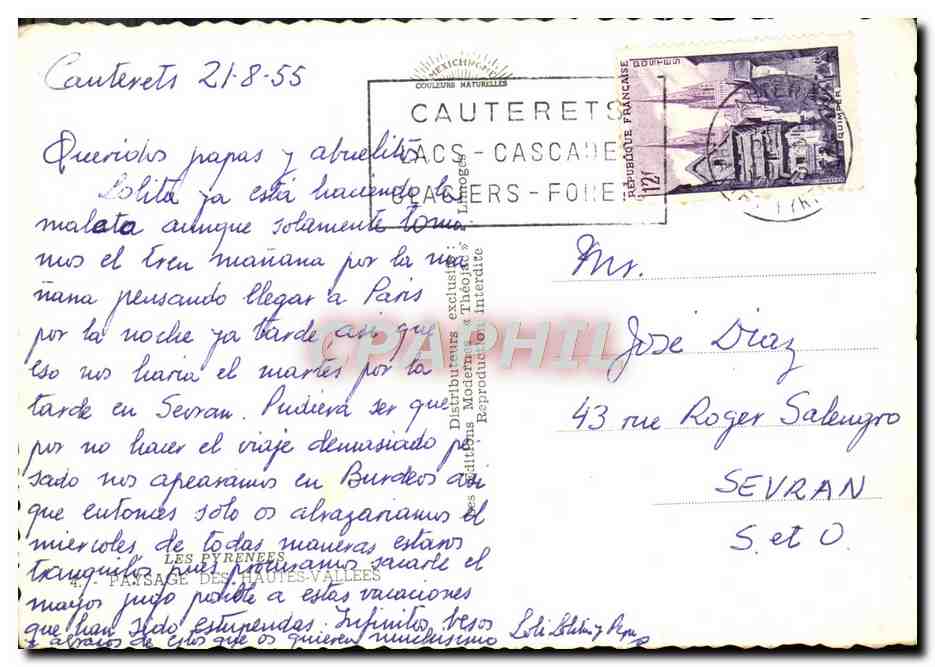 Cauterets 21-8-55
Queridos papas y abuelito
Lolita ya está haciendo la
maleta aunque solamente toma-
mos el tren mañana por la ma-
ñana pensando llegar a Paris
por la noche ya tarde asi que
eso nos haria el martes por la
tarde en Sevran. Pudiera ser que
por no hacer el viaje demasiado pe-
sado nos apearamos en Burdeos asi
que entonces sólo os abrazariamos el
miercoles de todas maneras estaros
tranquilos pues procuramos sacarle el
mayor jugo posible a estas vacaciones
que han sido estupendas. Infinitos besos
y abrazos de estos que os quieren muchisimo
Loli Lolita y Pepe
LES PYRENEES
4. - PAYSAGE DES HAUTES-VALLEES
MEXICHROME
COULEURS NATURELLES
CAUTERETS
LACS - CASCADE
GLACIERS - FORET
Distributeurs exclusifs :
Les Editions Modernes « Théojac » Limoges
Reproduction interdite
REPUBLIQUE FRANÇAISE
POSTES
12F
QUIMPER
CPAPHIL
Mr.
José Diaz
43 rue Roger Salengro
SEVRAN
S. et O.